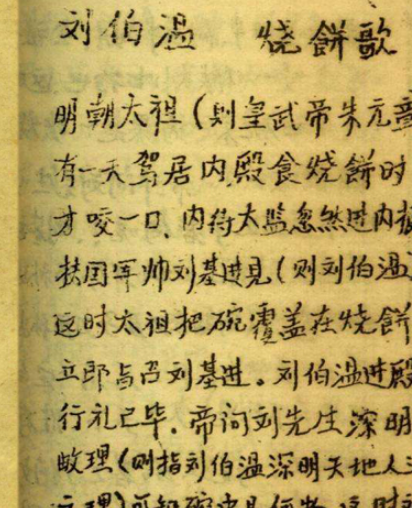 刘伯温 烧餅歌
明朝太祖(则皇武帝朱元璋
有一天驾居内殿食烧餅时
才咬一口、内侍太监忽然进内
扶国军帅刘基进見(则刘伯温
这时太祖把碗覆盖在烧餅
立即与召刘基进。刘伯温进殿
行礼已毕.帝问刘先生深明
理(则指刘伯温深明天地人